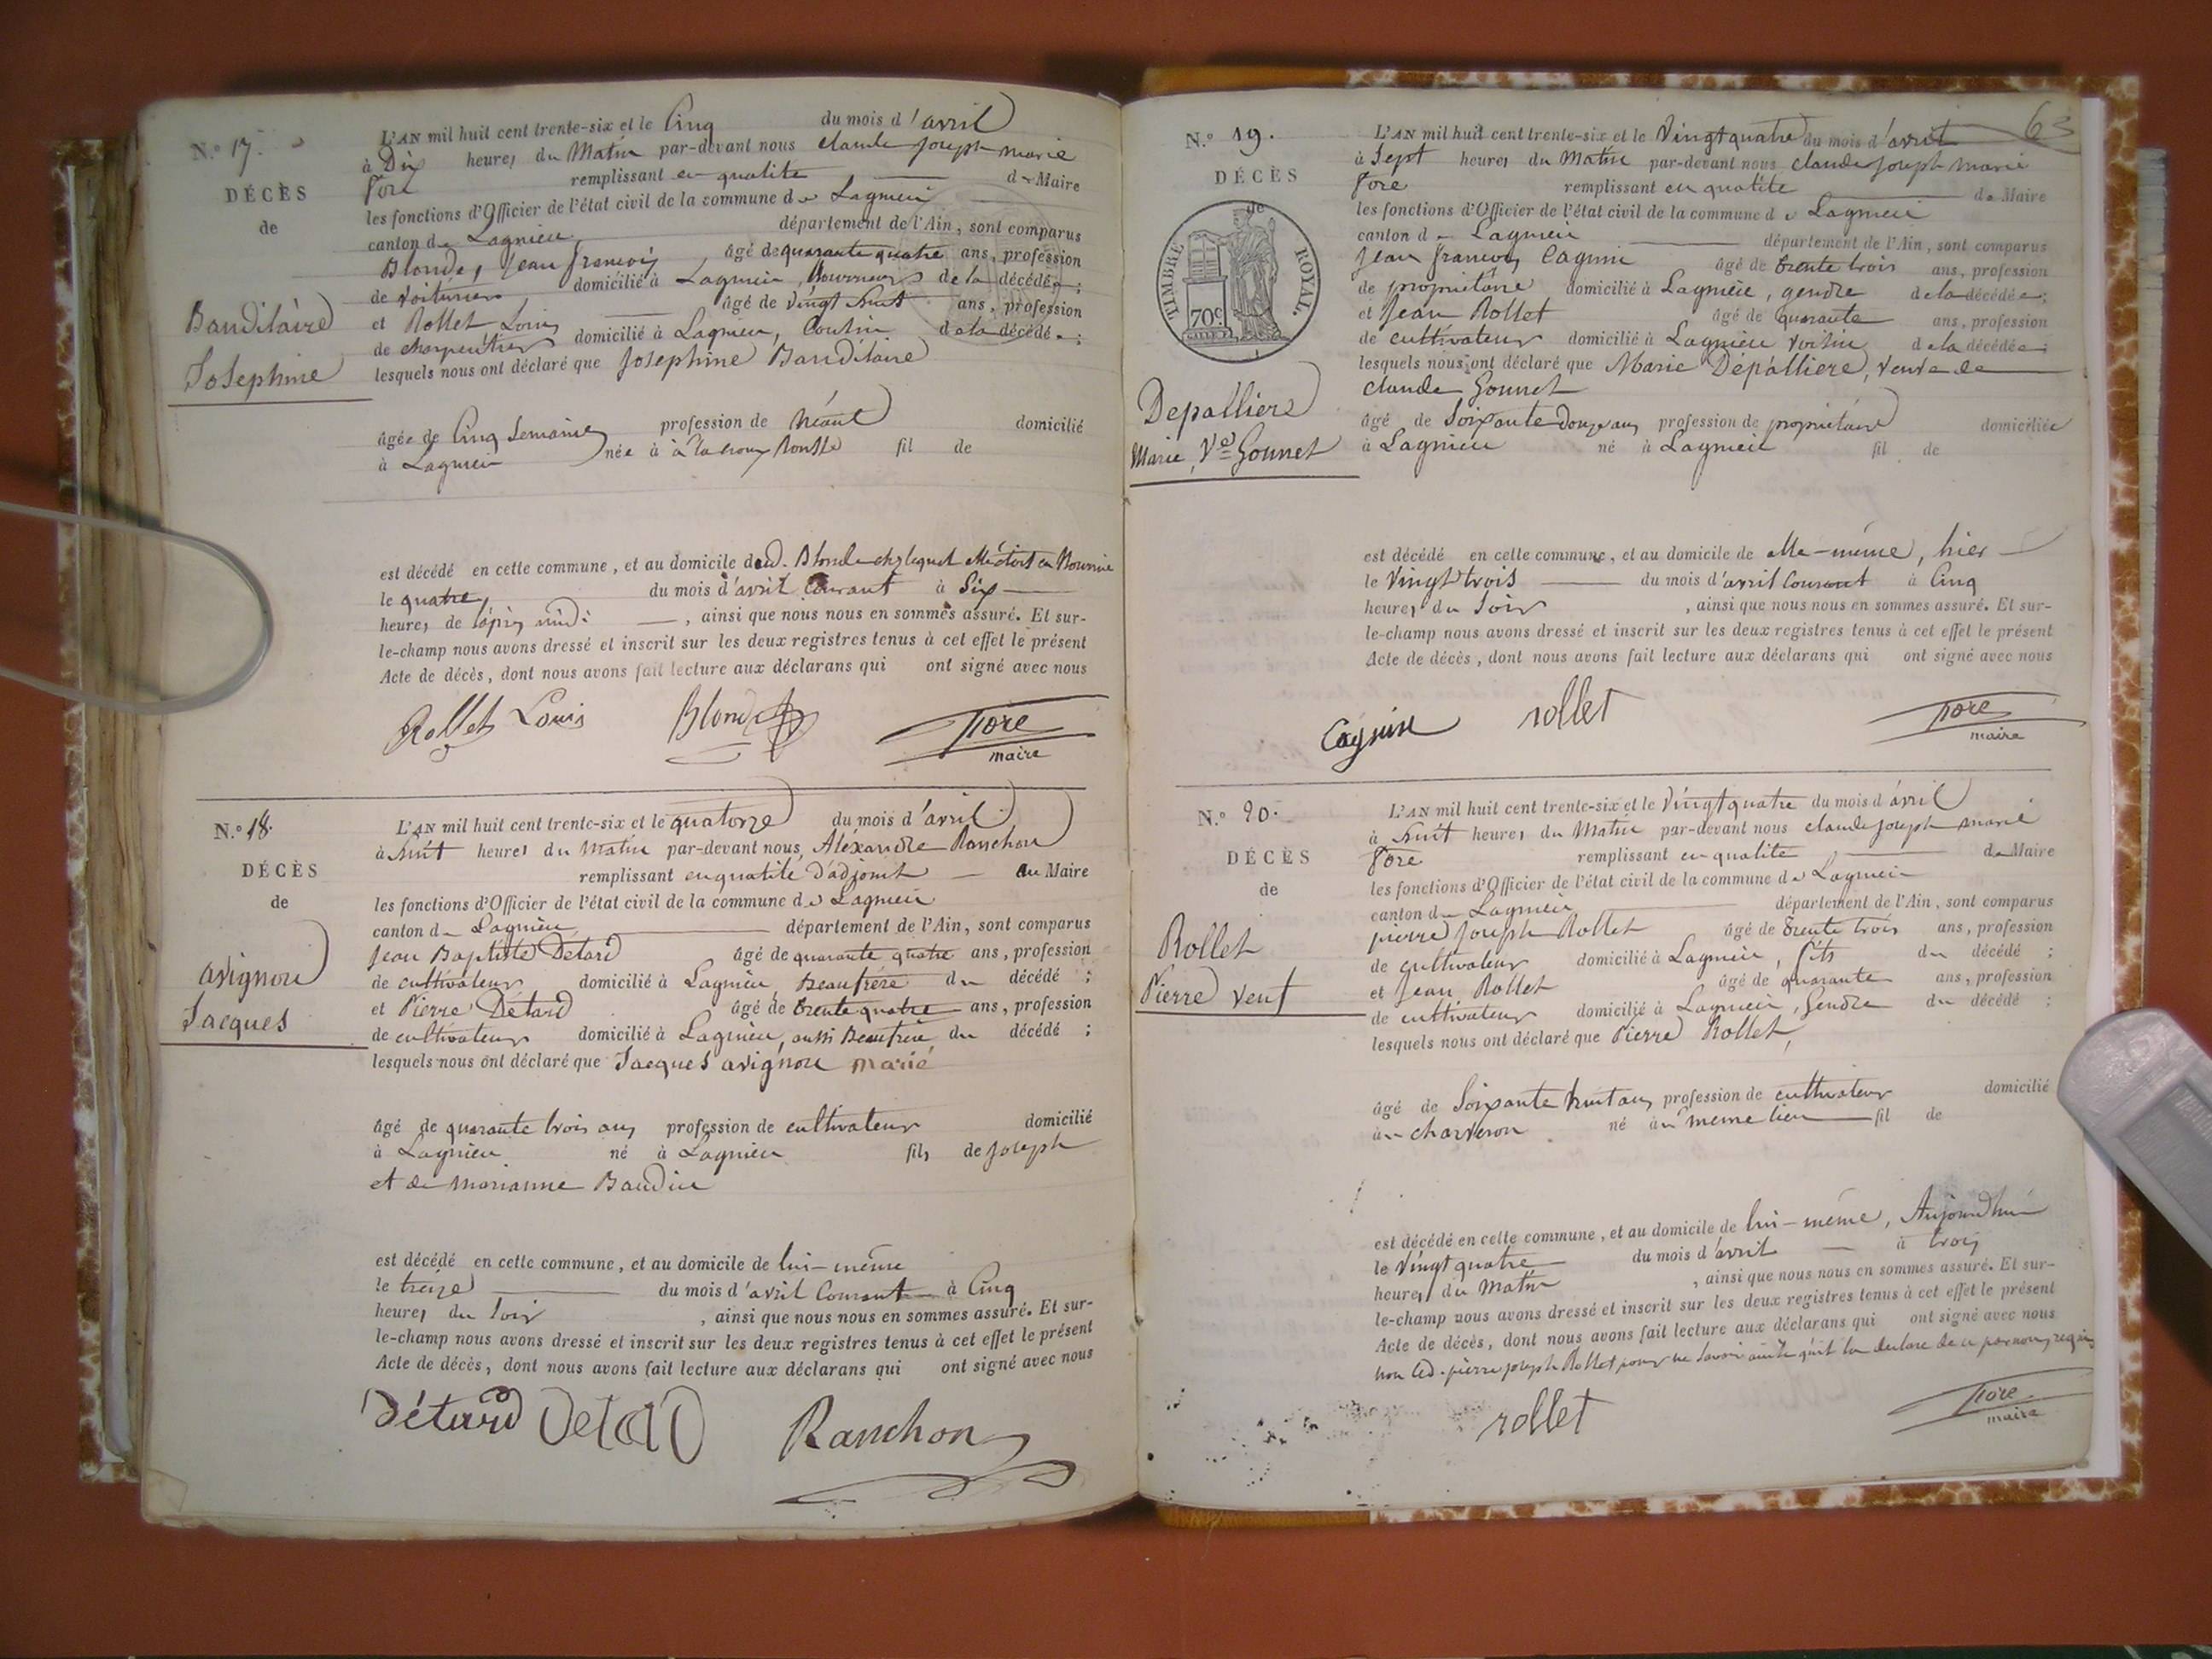 N.° 17.
DÉCÈS
de
Bauditaire
Josephine
L'AN mil huit cent trente-six et le Cinq du mois d'avril
à Dix heures du Matin par-devant nous claude joseph marie
Tore remplissant en qualité de Maire
les fonctions d'Officier de l'état civil de la commune de Lagnieu
canton de Lagnieu département de l'Ain, sont comparus
Blonde, jean françois âgé de quarante quatre ans, profession
de voiturier domicilié à Lagnieu, Nourricier de la décédée;
et Rollet Louis âgé de vingt huit ans, profession
de charpentier domicilié à Lagnieu, Coutin de la décédée;
lesquels nous ont déclaré que Josephine Bauditaire
âgée de Cinq Semaines profession de néant domicilié
à Lagnieu née à à la croix Rousse fil de
est décédé en cette commune, et au domicile dud. Blonde chez lequel elle étoit en Nourrice
le quatre, du mois d'avril Courant à Six
heures de l'après midi, ainsi que nous nous en sommes assuré. Et sur-
le-champ nous avons dressé et inscrit sur les deux registres tenus à cet effet le présent
Acte de décès, dont nous avons fait lecture aux déclarans qui ont signé avec nous
Rollet Louis Blonde Tore
maire
N.° 18.
DÉCÈS
de
avignon
Jacques
L'AN mil huit cent trente-six et le quatorze du mois d'avril
à huit heures du matin par-devant nous Aléxandre Ranchon
remplissant en qualité d'adjoint au Maire
les fonctions d'Officier de l'état civil de la commune de Lagnieu
canton de Lagnieu département de l'Ain, sont comparus
Jean Baptiste Détard âgé de quarante quatre ans, profession
de cultivateur domicilié à Lagnieu, Beaufrère du décédé;
et Pierre Détard âgé de trente quatre ans, profession
de cultivateur domicilié à Lagnieu, aussi Beaufrère du décédé;
lesquels nous ont déclaré que Jacques avignon marié
âgé de quarante trois ans profession de cultivateur domicilié
à Lagnieu né à Lagnieu fils de joseph
et de marianne Baudin
est décédé en cette commune, et au domicile de lui-même
le treize du mois d'avril Courant à Cinq
heures du soir, ainsi que nous nous en sommes assuré. Et sur-
le-champ nous avons dressé et inscrit sur les deux registres tenus à cet effet le présent
Acte de décès, dont nous avons fait lecture aux déclarans qui ont signé avec nous
Détard Detard Ranchon
63
N.° 19.
DÉCÈS
de
TIMBRE ROYAL.
70c
Depalliere
Marie, Ve Gounet
L'AN mil huit cent trente-six et le Vingt quatre du mois d'avril
à Sept heures du Matin par-devant nous claude joseph marie
Tore remplissant en qualité de Maire
les fonctions d'Officier de l'état civil de la commune de Lagnieu
canton de Lagnieu département de l'Ain, sont comparus
Jean françois Cagnin âgé de trente trois ans, profession
de propriétaire domicilié à Lagnieu, gendre de la décédée;
et Jean Rollet âgé de quarante ans, profession
de cultivateur domicilié à Lagnieu voisin de la décédée;
lesquels nous ont déclaré que Marie Dépalliere, veuve de
claude Gounet
âgé de Soixante Douze ans profession de propriétaire domiciliée
à Lagnieu né à Lagnieu fil de
est décédé en cette commune, et au domicile de elle-même, hier
le Vingt trois du mois d'avril Courant à Cinq
heures du Soir, ainsi que nous nous en sommes assuré. Et sur-
le-champ nous avons dressé et inscrit sur les deux registres tenus à cet effet le présent
Acte de décès, dont nous avons fait lecture aux déclarans qui ont signé avec nous
Cagnin rollet Tore
maire
N.° 20.
DÉCÈS
de
Rollet
Pierre veuf
L'AN mil huit cent trente-six et le Vingt quatre du mois d'avril
à huit heures du Matin par-devant nous claude joseph marie
Tore remplissant en qualité de Maire
les fonctions d'Officier de l'état civil de la commune de Lagnieu
canton de Lagnieu département de l'Ain, sont comparus
pierre joseph Rollet âgé de trente trois ans, profession
de cultivateur domicilié à Lagnieu, fils du décédé;
et Jean Rollet âgé de quarante ans, profession
de cultivateur domicilié à Lagnieu, Gendre du décédé;
lesquels nous ont déclaré que Pierre Rollet,
âgé de Soixante huit ans profession de cultivateur domicilié
à charveron né au même lieu fil de
est décédé en cette commune, et au domicile de lui-même, Aujourd'hui
le Vingt quatre du mois d'avril à trois
heures du Matin, ainsi que nous nous en sommes assuré. Et sur-
le-champ nous avons dressé et inscrit sur les deux registres tenus à cet effet le présent
Acte de décès, dont nous avons fait lecture aux déclarans qui ont signé avec nous
non led. pierre joseph Rollet pour ne savoir ainsi qu'il l'a déclaré de ce par nous requis
rollet Tore
maire